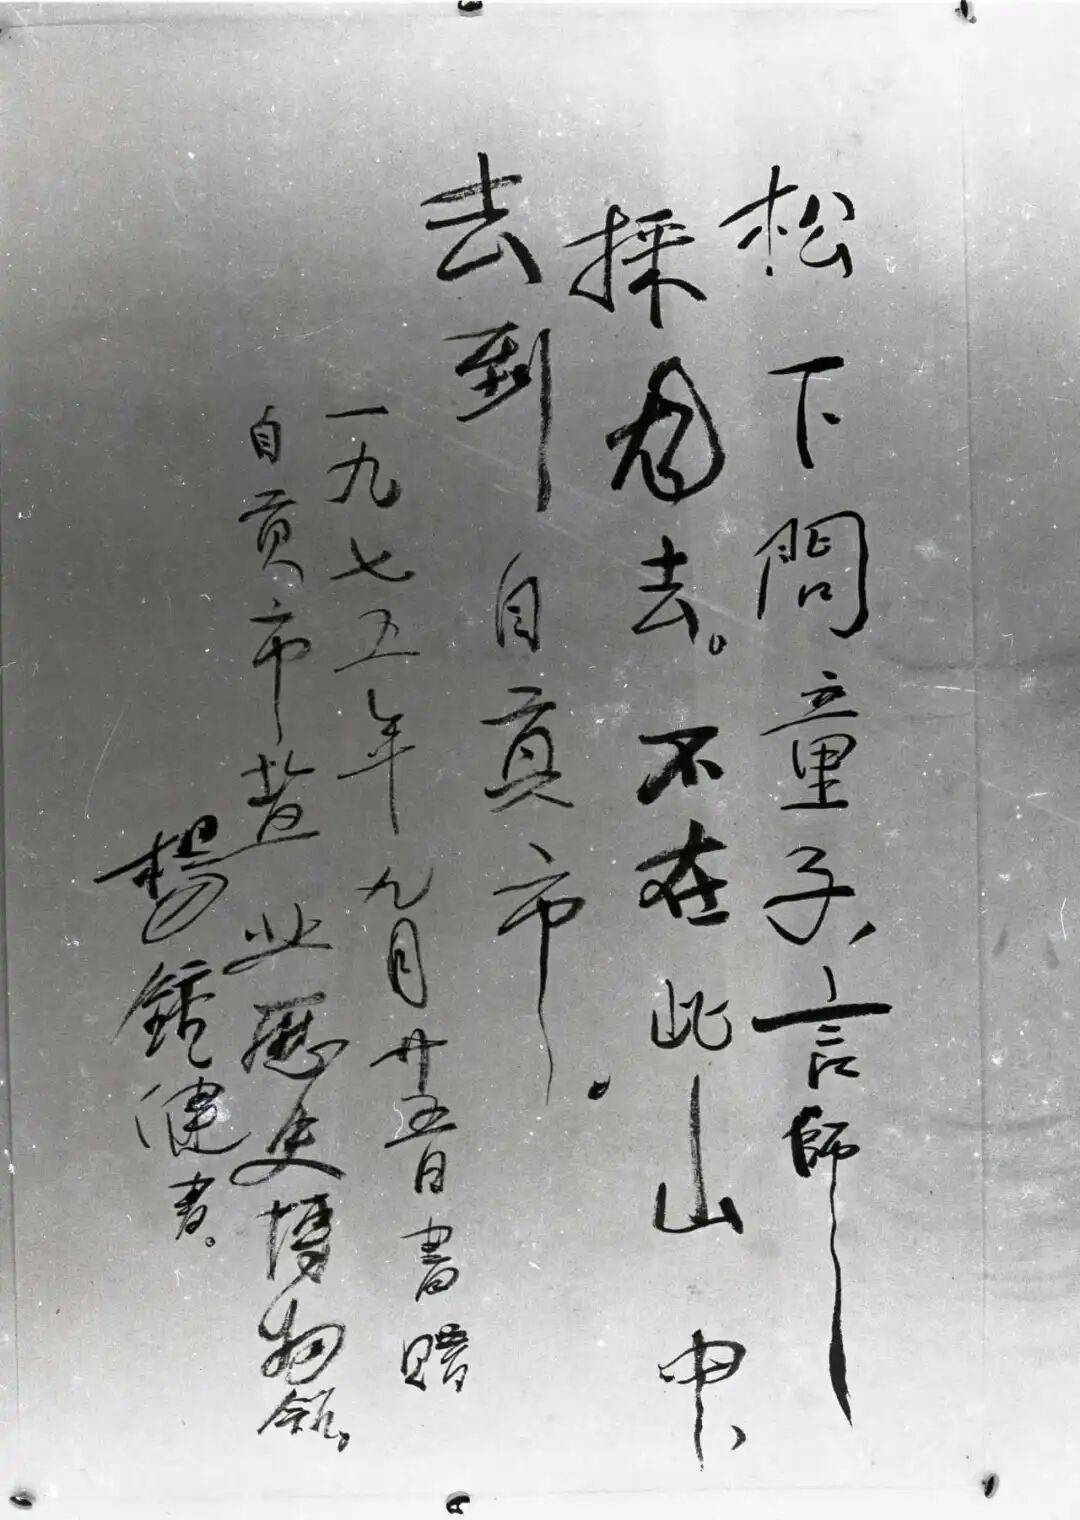 松下問童子、言師
採去。不在此山中、
去到自貢市.
一九七五年九月廿五日書贈
自贡市盐业歷史博物館。
楊鍾健書。